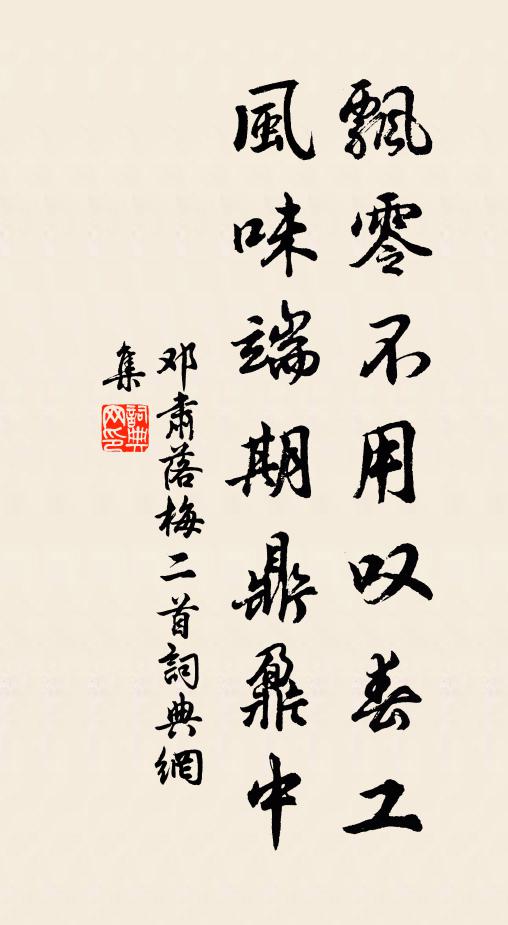 飄零不用叹春工
風味端期鼎鼐中
邓肅落梅二首詞典網
集
詞典
网印